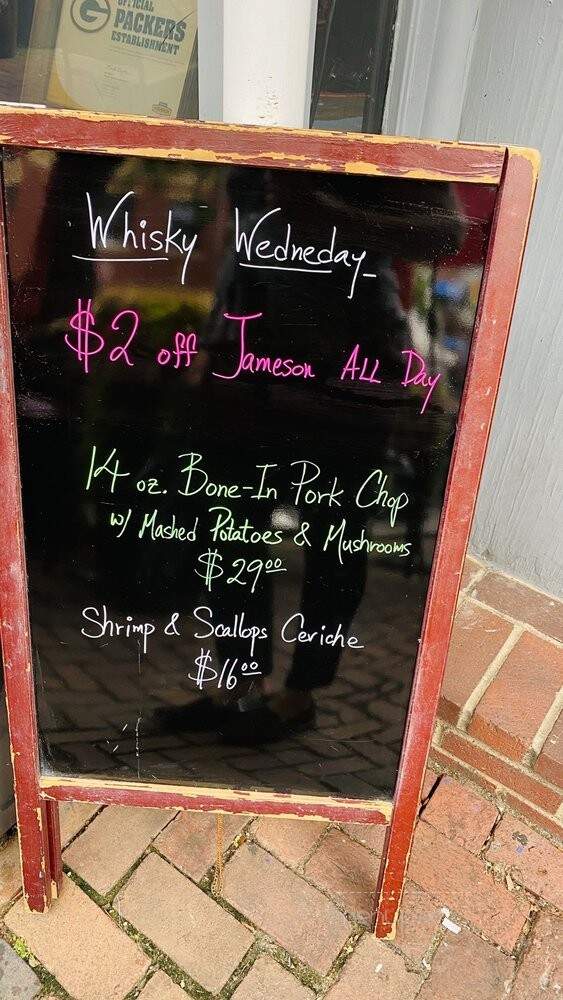 OFFICIAL
PACKERS
ESTABLISHMENT
Whisky Wedneday
$2 off Jameson ALL Day
14 oz. Bone-In Pork Chop
w/ Mashed Potatoes & Mushrooms
$29.00
Shrimp & Scallops Ceviche
$16.00